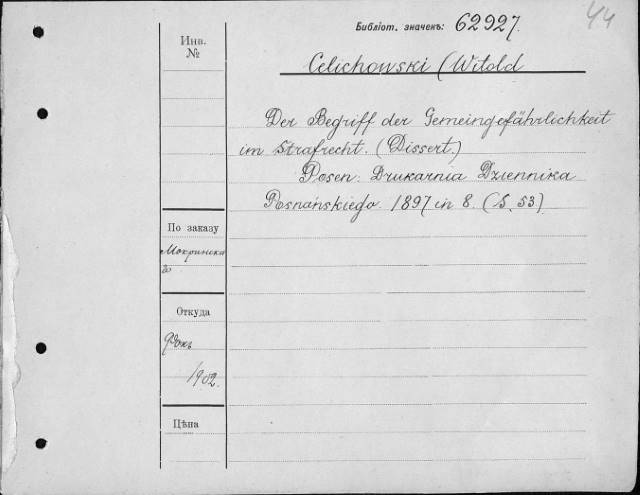 Библіот. значекъ: 62927.
44
Инв.
№
Celichowski (Witold
Der Begriff der Gemeingefährlichkeit
im Strafrecht. (Dissert.)
Posen: Drukarnia Dziennika
Posnańskiego. 1897 in 8. (S. 53)
По заказу
Мокринска
го
Откуда
Фокъ
1902.
Цѣна